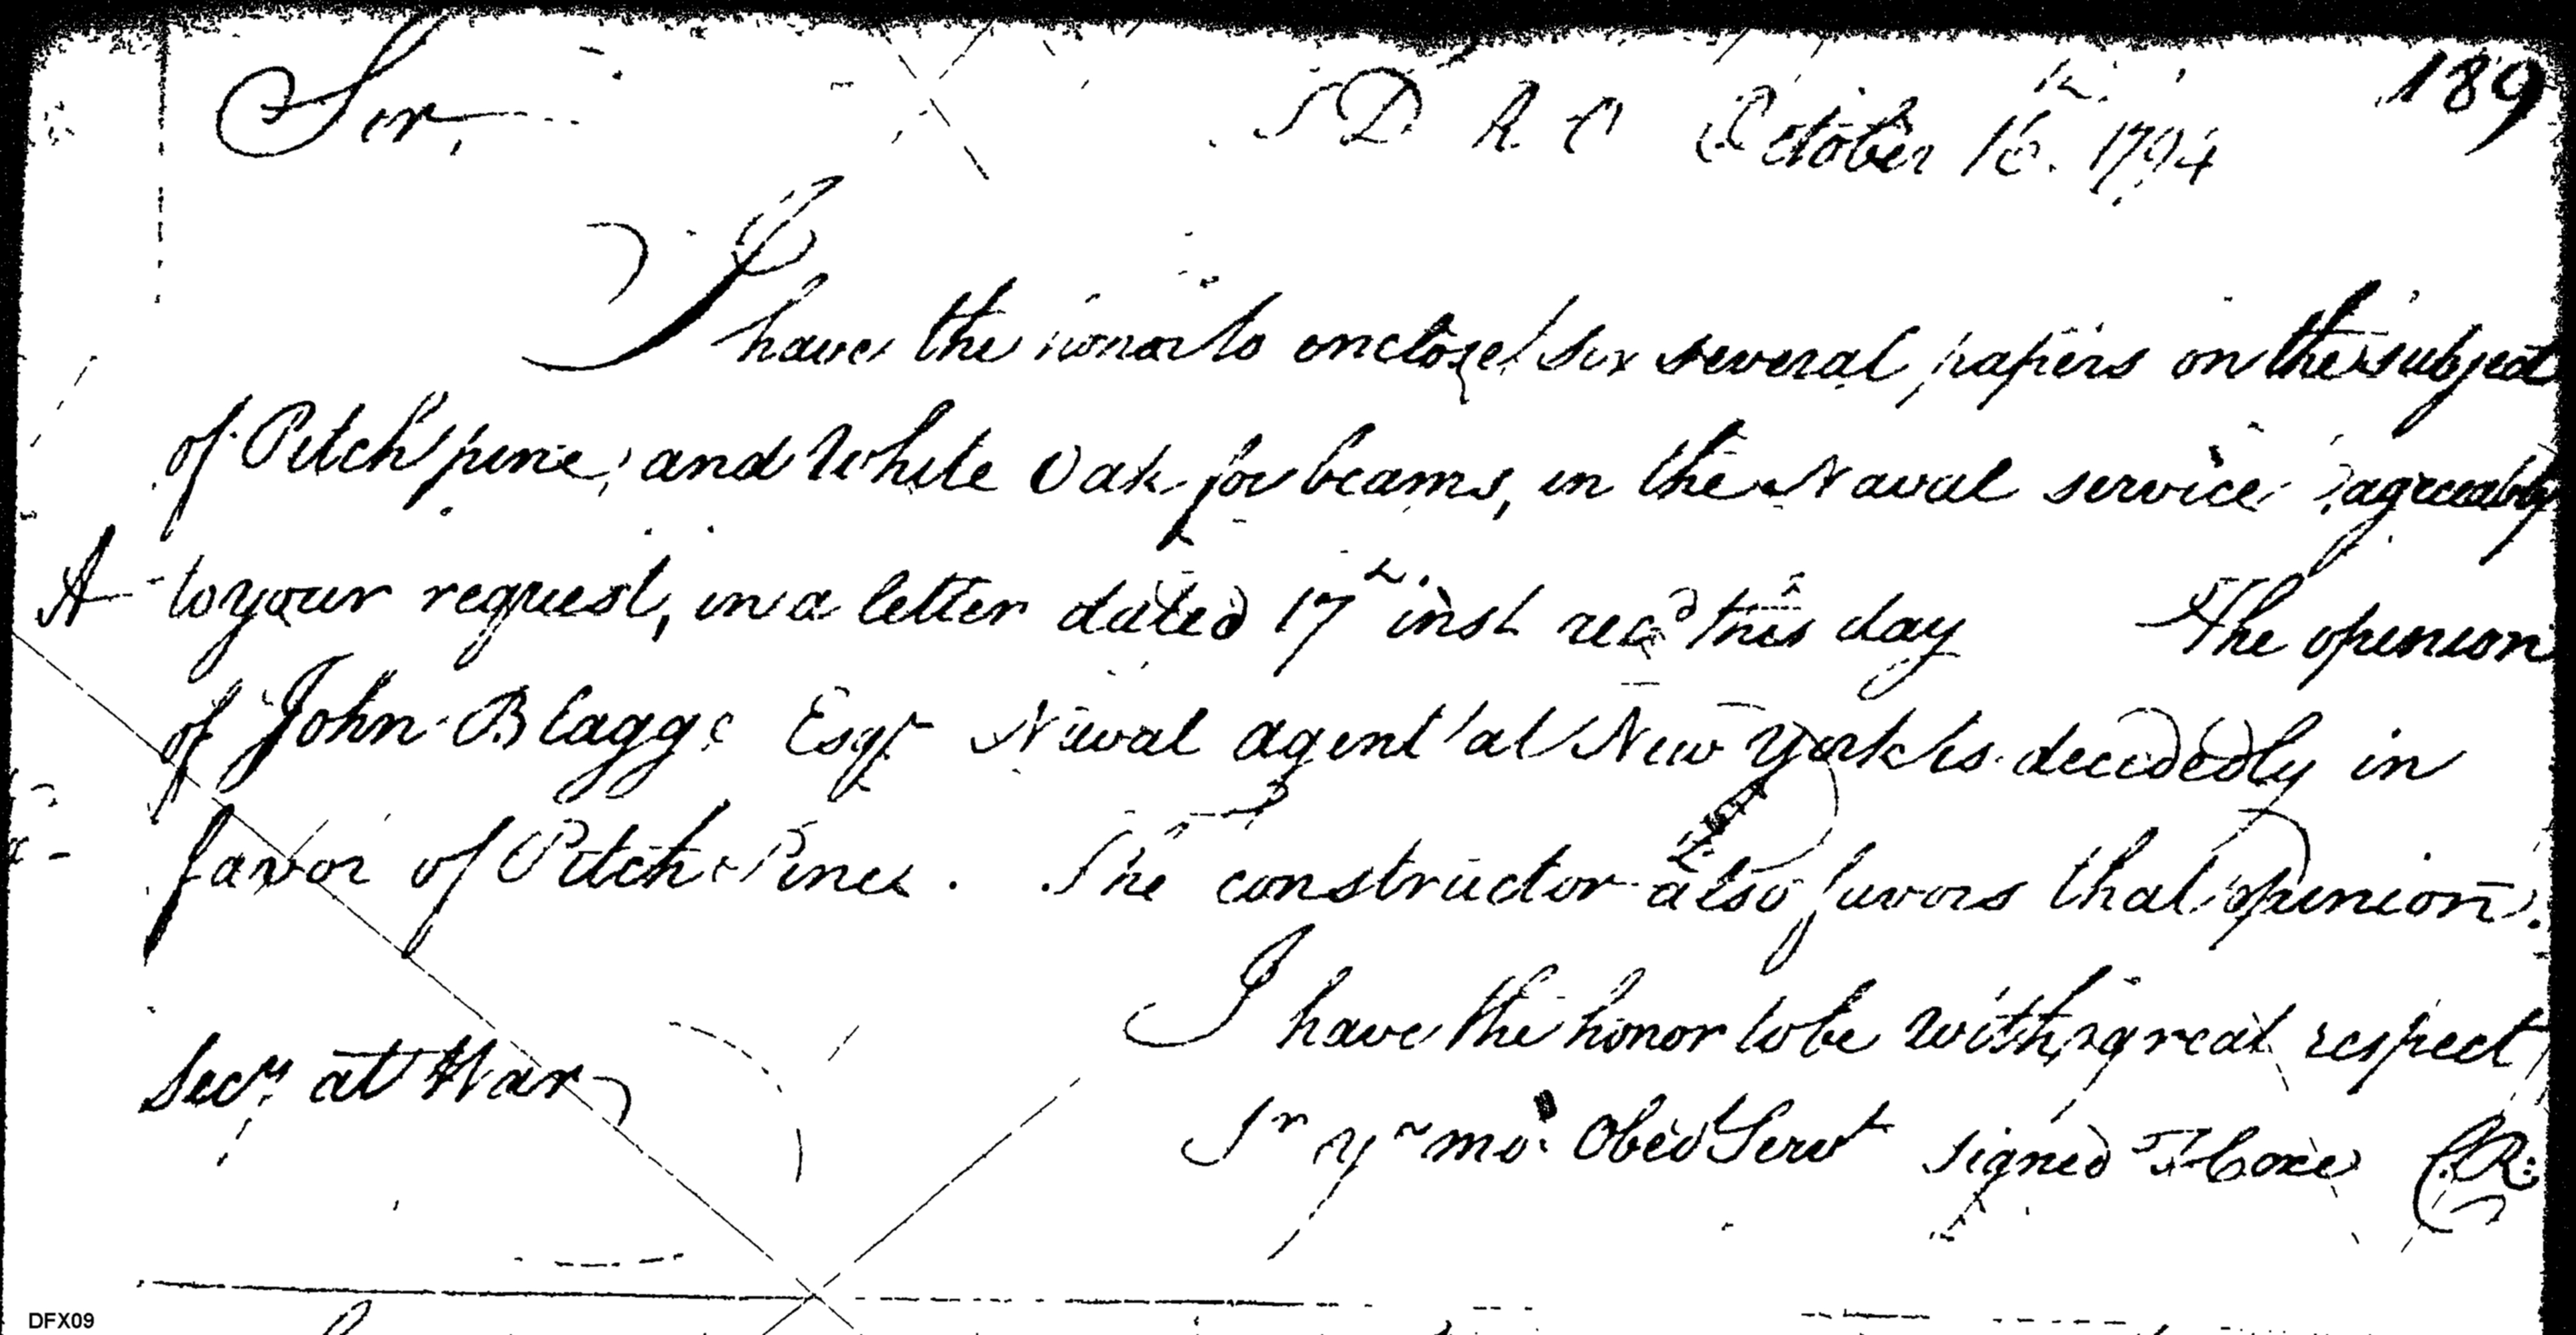 189
Sir, T D R O October 16th. 1794
I have the honor to enclose six several papers on the subject
of Pitch pine, and White Oak for beams, in the Naval service agreeably
A to your request, in a letter dated 17th. inst recd this day The opinion
of John Blagge Esqr Naval agent at New York is decidedly in
favor of Pitch Pine. The constructor also favors that opinion.
I have the honor to be with great respect
Secy. at War
Sr yr mo. Obed Servt signed T Coxe C.R:
DFX09